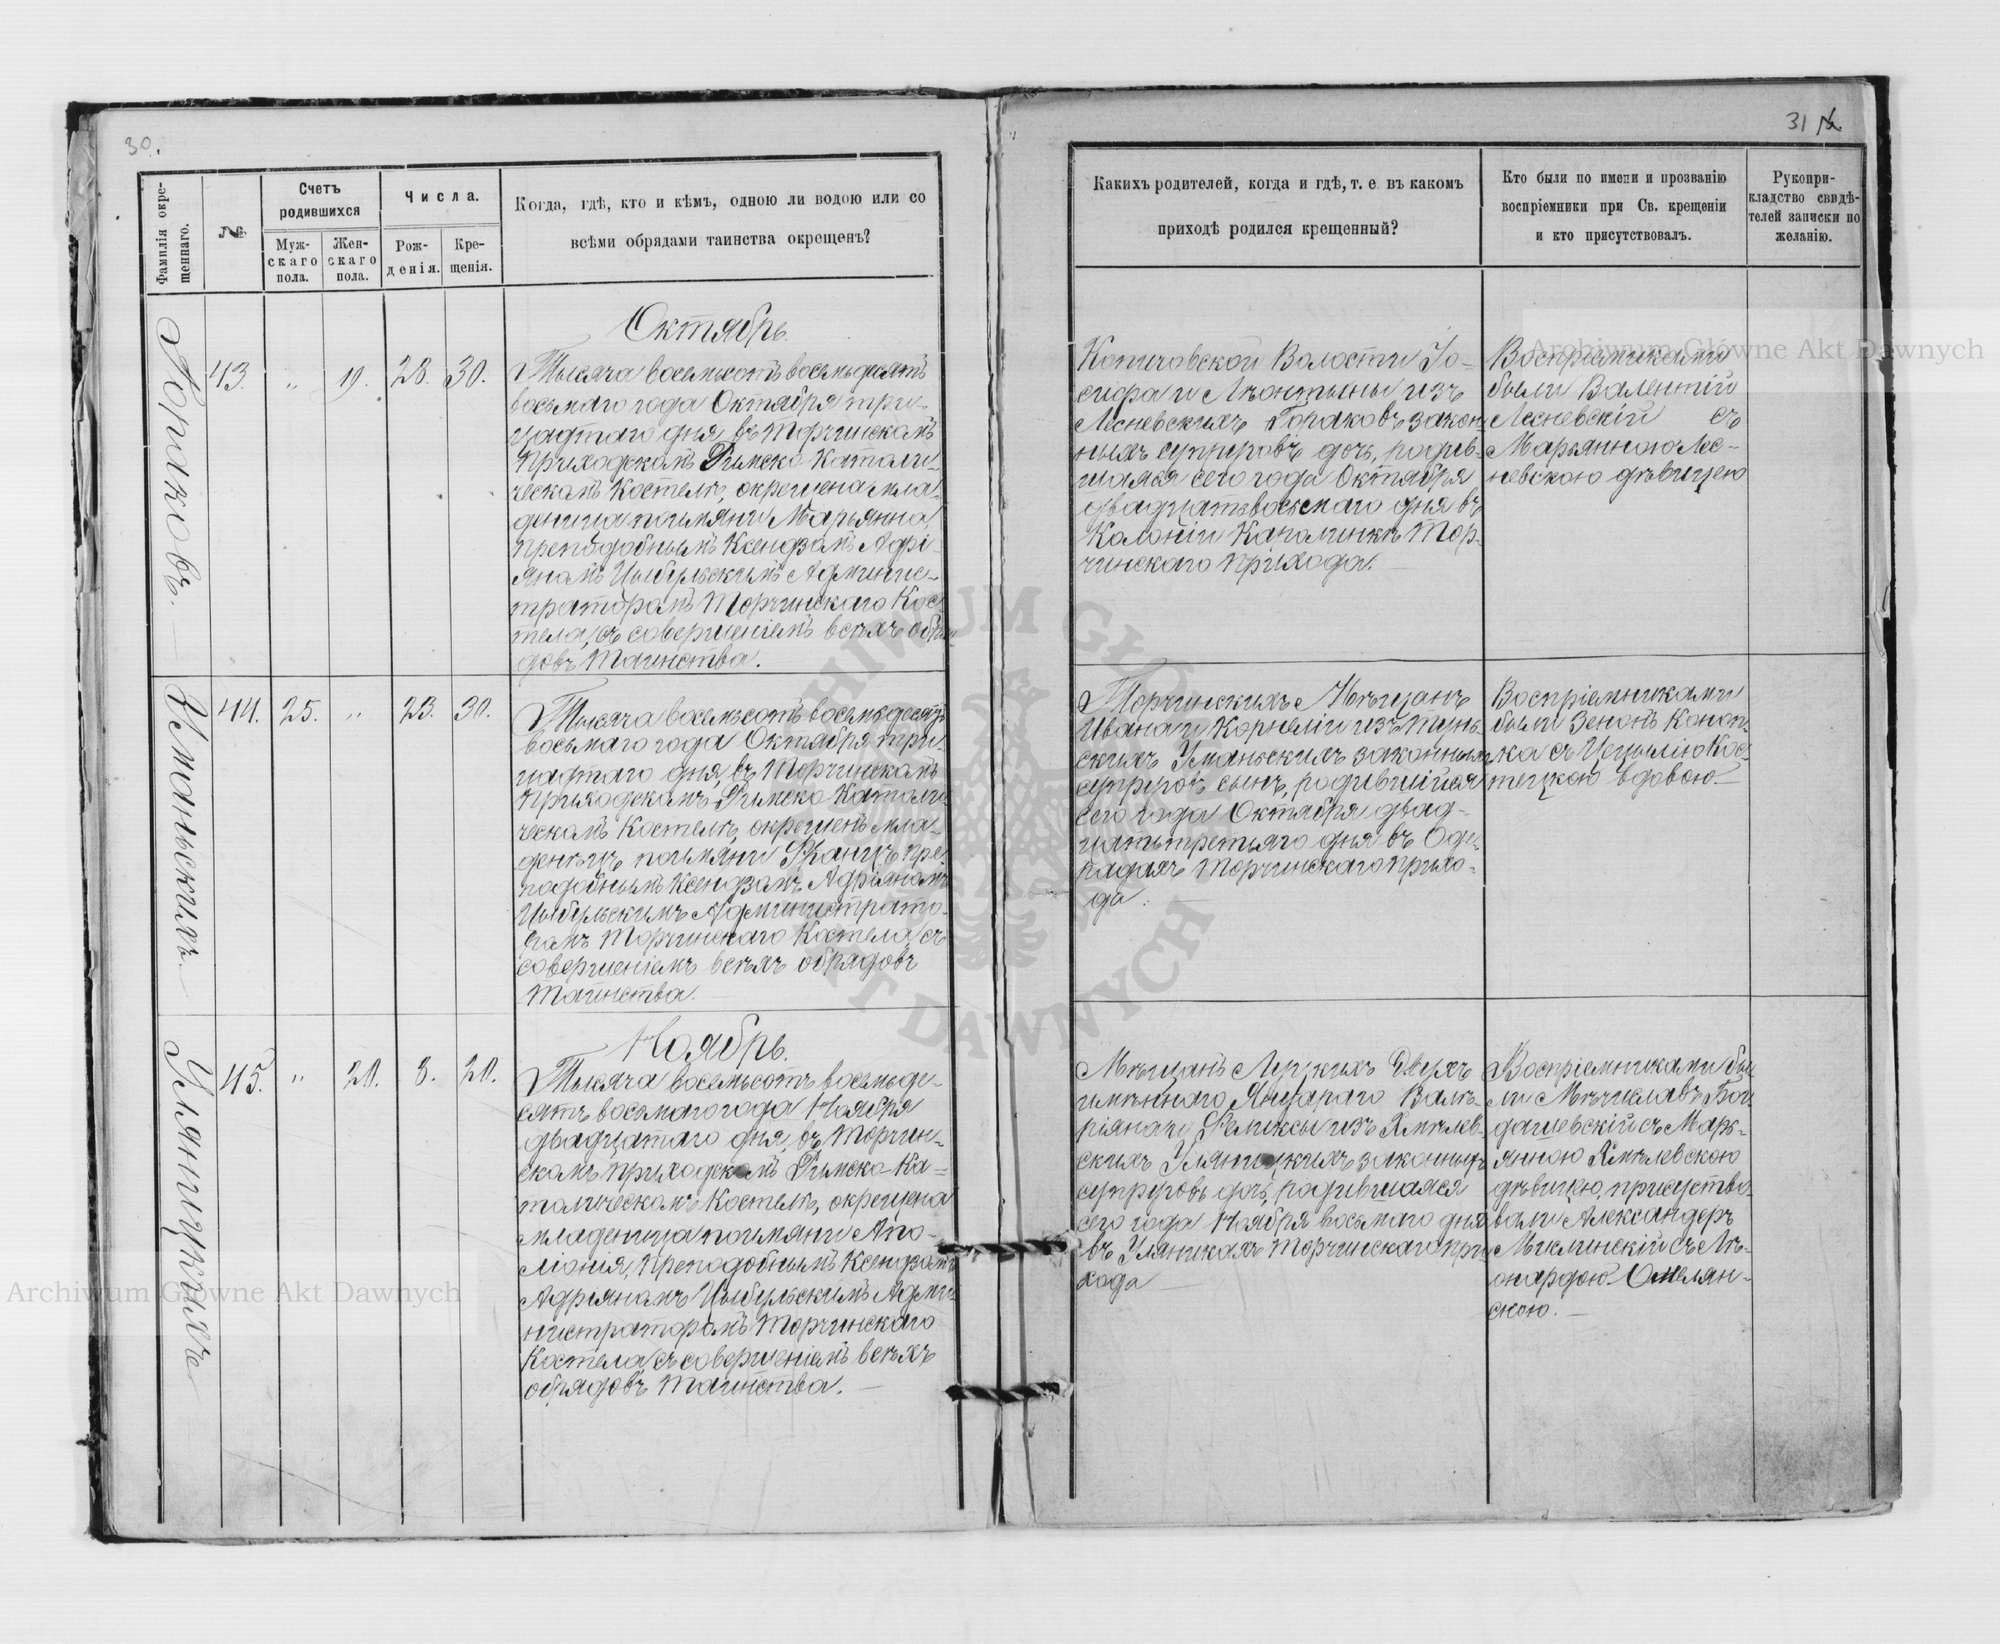 30.
Фамилія окре-
щеннаго.
№
Счетъ
родившихся
Муж-
скаго
пола.
Жен-
скаго
пола.
Числа.
Рож-
денія.
Кре-
щенія.
Когда, гдѣ, кто и кѣмъ, одною ли водою или со
всѣми обрядами таинства окрещенъ?
Октябрь.
43. „ 19. 28. 30.
Тысяча восемьсотъ восемьдесятъ
восьмаго года Октября три-
цатаго дня, въ Торчинскомъ
Приходскомъ Римско-Католи-
ческомъ Костелѣ, окрещена мла-
деница по имяни Марьянна,
Преподобнымъ Ксендзомъ Адрі-
яномъ Цыбульскимъ Админис-
траторомъ Торчинскаго Кос-
тела, съ совершеніемъ всѣхъ обря-
довъ Таинства.
Усманьскихъ
44. 25. „ 23. 30.
Тысяча восемьсотъ восемьдесятъ
восьмаго года Октября три-
цатаго дня, въ Торчинскомъ
Приходскомъ Римско-Католи-
ческомъ Костелѣ, окрещенъ мла-
денецъ по имяни Пре-
подобнымъ Ксендзомъ Адріяномъ
Цыбульскимъ Администрато-
ромъ Торчинскаго Костела, съ
совершеніемъ всѣхъ обрядовъ
Таинства.
Уляницкихъ
Ноябрь.
45. „ 20. 8. 20.
Тысяча восемьсотъ восемьде-
сятъ восьмаго года Ноября
двадцатаго дня, въ Торчин-
скомъ Приходскомъ Римско-Ка-
толическомъ Костелѣ, окрещена
младеница по имяни Апо-
лонія, Преподобнымъ Ксендзомъ
Адріяномъ Цыбульскимъ Адми-
нистраторомъ Торчинскаго
Костела съ совершеніемъ всѣхъ
обрядовъ Таинства.
31
Какихъ родителей, когда и гдѣ, т. е. въ какомъ
приходѣ родился крещенный?
Кто были по имени и прозванію
воспріемники при Св. крещеніи
и кто присутствовалъ.
Рукопри-
кладство свидѣ-
телей записки по
желанію.
Волости Іо-
сифа и Лѣонтыны изъ
Лесневскихъ закон-
ныхъ супруговъ дочь, родив-
шаяся сего года Октября
двадцатьвосьмаго дня въ
Колоніи Каролинкѣ Тор-
чинскаго Прихода.
Воспріемниками
были Валентій
Лесневскій съ
Марьянною Лес-
невскою дѣвицею
Торчинскихъ Мѣщанъ
Ивана и Корнеліи изъ
скихъ Усманьскихъ законныхъ
супруговъ сынъ, родившійся
сего года Октября двад-
цатьтретьяго дня въ
Торчинскаго Прихо-
да.
Воспріемниками
были Зенонъ Коноп-
ка съ Цецылію Кос-
тецкою вдовою.
Мѣщанъ Луцкихъ Двухъ
имѣннаго Януараго Валѣ-
ріяна и Феликсы изъ Хмѣлев-
скихъ Уляницкихъ законныхъ
супруговъ дочь, родившаяся
сего года Ноября восьмаго дня
въ Уляникахъ Торчинскаго При-
хода
Воспріемниками бы-
ли Мѣчиславъ Бог-
дашевскій съ Марь-
янною Хмѣлевскою
дѣвицею, присутство-
вали Александеръ
Мислинскій съ Лѣ-
онардою Омелян-
скою.
Archiwum Główne Akt Dawnych
Archiwum Główne Akt Dawnych
ARCHIWUM GŁÓWNE
AKT DAWNYCH